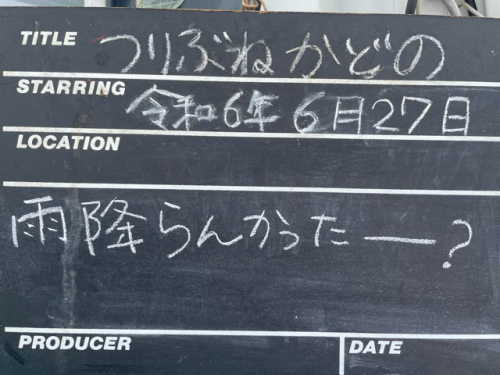 TITLE つりぶねかどの
STARRING 令和6年6月27日
LOCATION
雨降らんかったー?
PRODUCER DATE